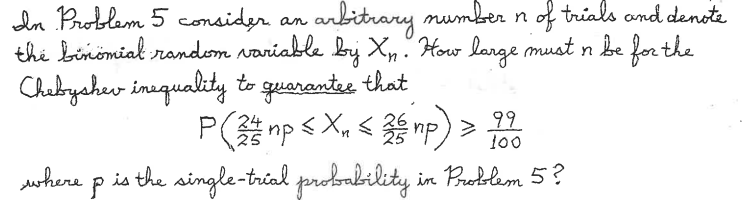 In Problem 5 consider an arbitrary number n of trials and denote
the binomial random variable by Xₙ. How large must n be for the
Chebyshev inequality to guarantee that
P(24/25 np ≤ Xₙ ≤ 26/25 np) ≥ 99/100
where p is the single-trial probability in Problem 5?